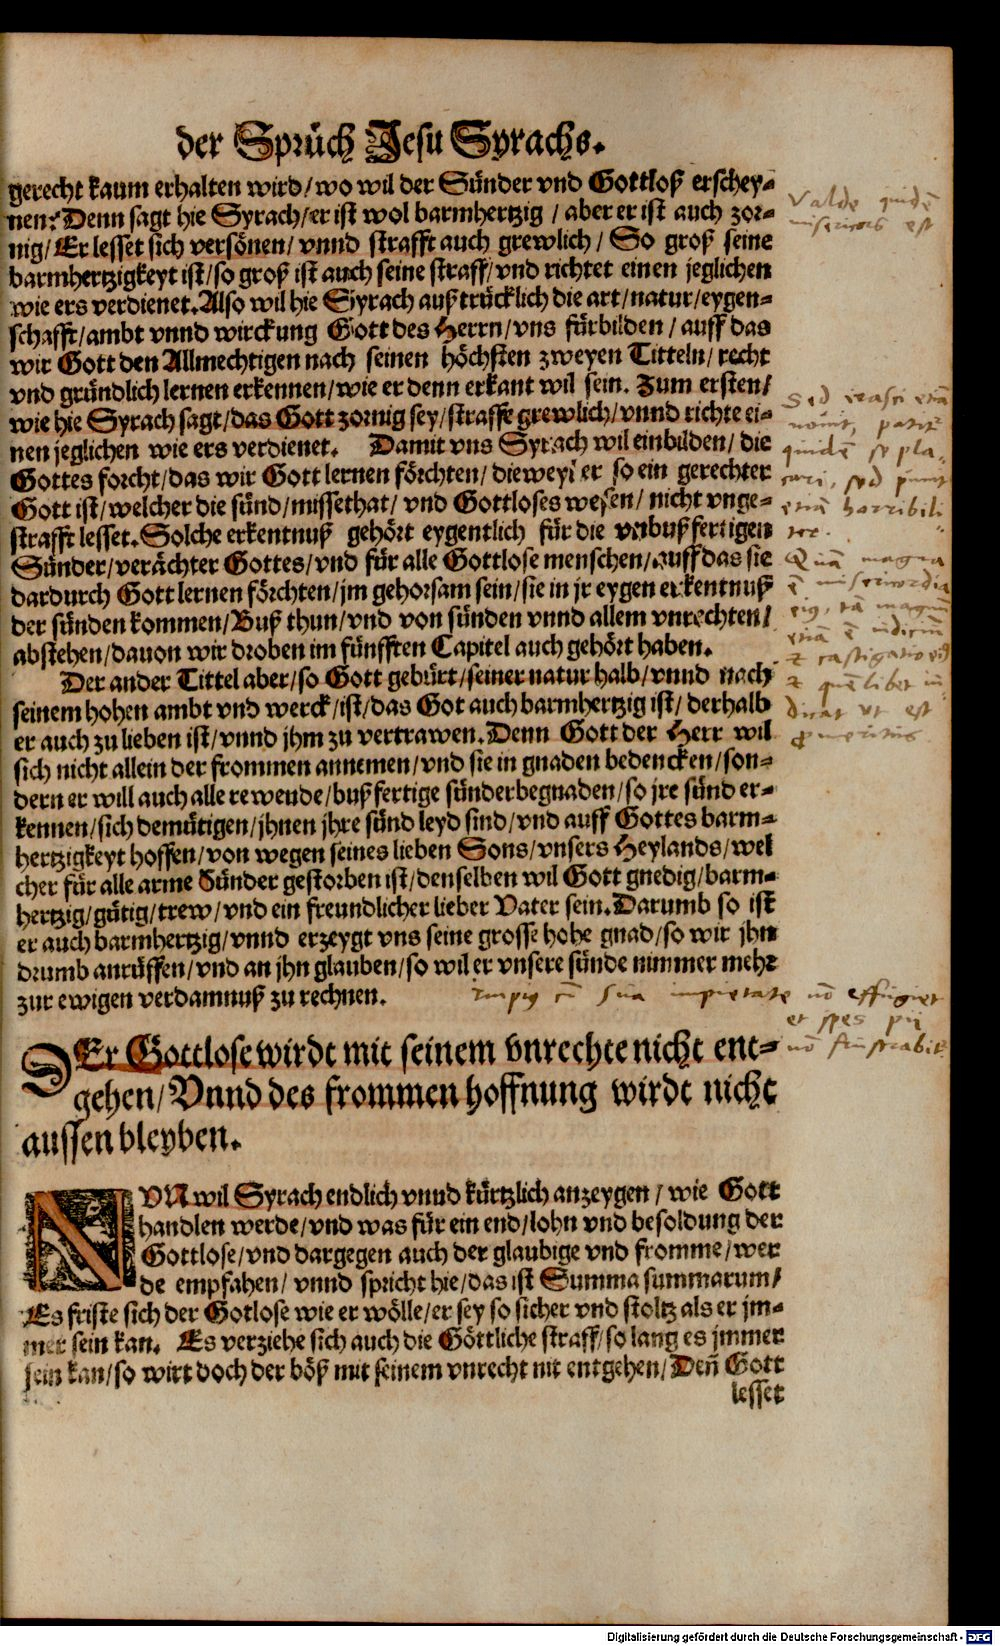 der Sprüch Jesu Syrachs.
gerecht kaum erhalten wird/wo wil der Sünder vnd Gottloß erschey-
nen? Denn sagt hie Syrach/er ist wol barmhertzig/aber er ist auch zor-
nig/Er lesset sich versönen/vnnd strafft auch grewlich/So groß seine
barmhertzigkeyt ist/so groß ist auch seine straff/vnd richtet einen jeglichen
wie ers verdienet. Also wil hie Syrach außtrücklich die art/natur/eygen-
schafft/ambt vnnd wirckung Gott des Herrn/vns fürbilden/auff das
wir Gott den Allmechtigen nach seinen höchsten zweyen Titteln/recht
vnd gründlich lernen erkennen/wie er denn erkant wil sein. Zum ersten/
wie hie Syrach sagt/das Gott zornig sey/straffe grewlich/vnnd richte ei-
nen jeglichen wie ers verdienet. Damit vns Syrach wil einbilden/die
Gottes forcht/das wir Gott lernen förchten/dieweyl er so ein gerechter
Gott ist/welcher die sünd/missethat/vnd Gottloses wesen/nicht vnge-
strafft lesset. Solche erkentnuß gehört eygentlich für die vnbußfertigen
Sünder/verächter Gottes/vnd für alle Gottlose menschen/auff das sie
dardurch Gott lernen förchten/jm gehorsam sein/sie in jr eygen erkentnuß
der sünden kommen/Buß thun/vnd von sünden vnnd allem vnrechten/
abstehen/dauon wir droben im fünfften Capitel auch gehört haben.
Der ander Tittel aber/so Gott gebürt/seiner natur halb/vnnd nach
seinem hohen ambt vnd werck/ist/das Got auch barmhertzig ist/derhalb
er auch zu lieben ist/vnnd jhm zu vertrawen. Denn Gott der Herr wil
sich nicht allein der frommen annemen/vnd sie in gnaden bedencken/son-
dern er will auch alle rewende/bußfertige sünder begnaden/so jre sünd er-
kennen/sich demütigen/jhnen jhre sünd leyd sind/vnd auff Gottes barm-
hertzigkeyt hoffen/von wegen seines lieben Sons/vnsers Heylands/wel
cher für alle arme Sünder gestorben ist/denselben wil Gott gnedig/barm-
hertzig/gütig/trew/vnd ein freundlicher lieber Vater sein. Darumb so ist
er auch barmhertzig/vnnd erzeygt vns seine grosse hohe gnad/so wir jhn
drumb anrüffen/vnd an jhn glauben/so wil er vnsere sünde nimmer mehr
zur ewigen verdamnuß zu rechnen.
DEr Gottlose wirdt mit seinem vnrechte nicht ent-
gehen/Vnnd des frommen hoffnung wirdt nicht
aussen bleyben.
NVN wil Syrach endlich vnnd kürtzlich anzeygen/wie Gott
handlen werde/vnd was für ein end/lohn vnd besoldung der
Gottlose/vnd dargegen auch der glaubige vnd fromme/wer
de empfahen/vnnd spricht hie/das ist Summa summarum/
Es friste sich der Gotlose wie er wölle/er sey so sicher vnd stoltz als er jm-
mer sein kan. Es verziehe sich auch die Göttliche straff/so lang es jmmer
sein kan/so wirt doch der böß mit seinem vnrecht nit entgehen/Deñ Gott
lesset
Valde quidē
misericors est
Sed irasci etiā
novit, patitʳ
quidē se pla-
cari, sed punit
etiā horribili-
ter.
Quā magna
ē misericordia
eiꝰ, tā magnū
etiā ē iudiciū
castigatio
quēlibet iu-
dicat ut est
ꝓmeritus.
Impiꝰ cū sua impietate nō effugiet
et spes pii
nō frustrabitʳ
Digitalisierung gefördert durch die Deutsche Forschungsgemeinschaft - DFG